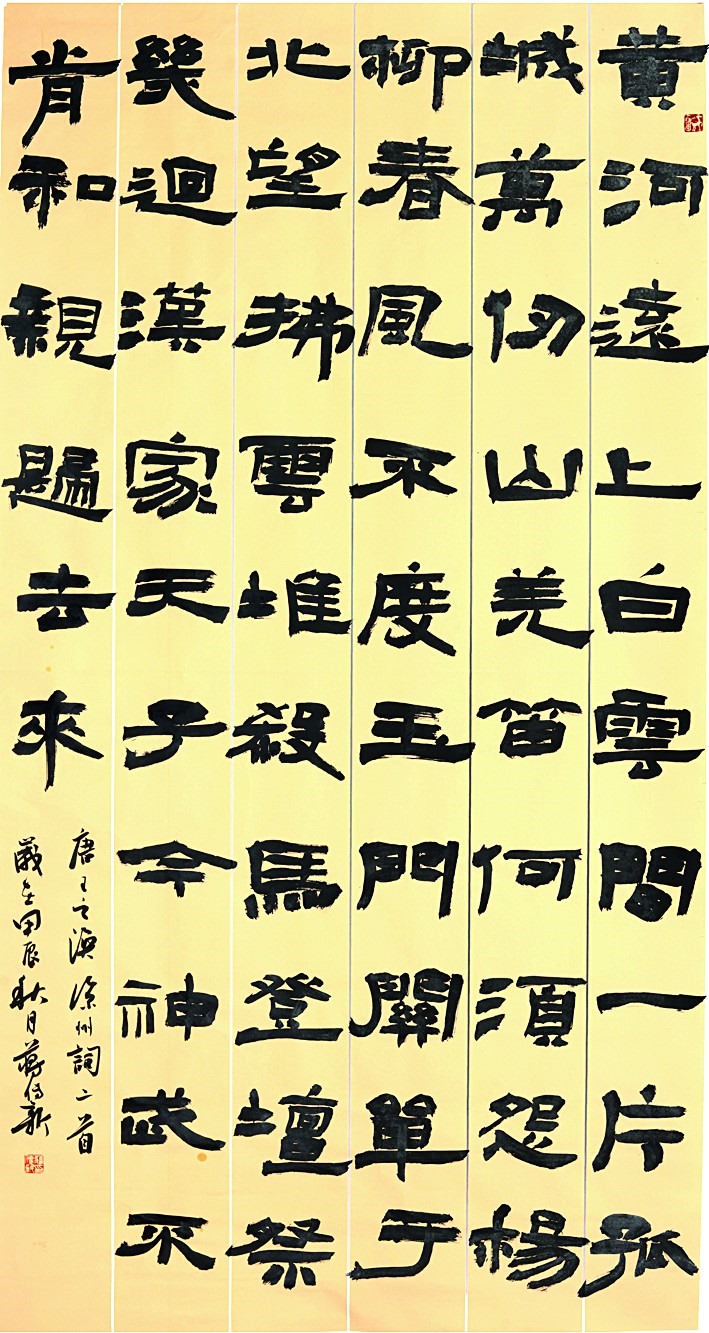 黄河遠上白雲間一片孤
城萬仞山羌笛何須怨楊
柳春風不度玉門關單于
北望拂雲堆殺馬登壇祭
幾迴漢家天子今神武不
肯和親歸去來
唐王之渙涼州詞二首
歲在甲辰秋月蔣新